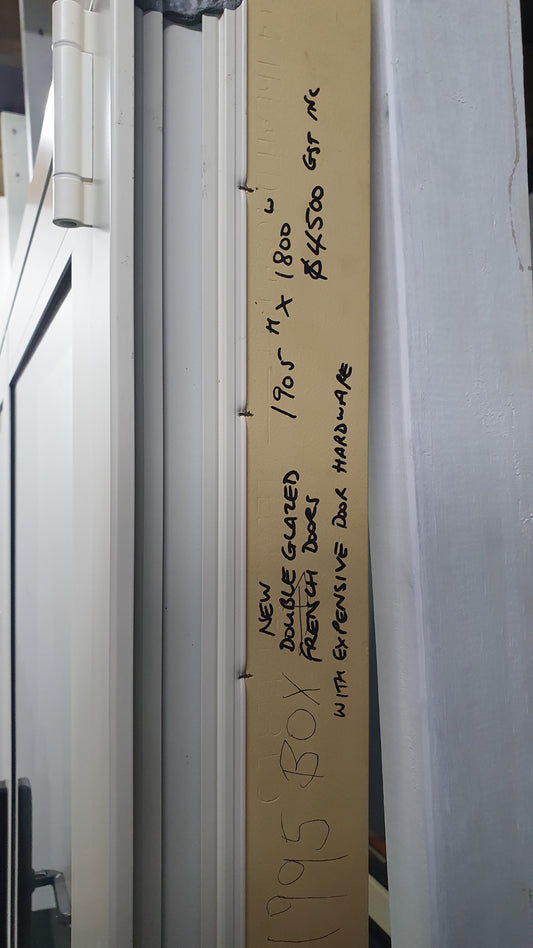 NEW
DOUBLE GLAZED 1905 H X 1800 W
FRENCH DOORS $4500 GST INC
WITH EXPENSIVE DOOR HARDWARE
1995 BOX